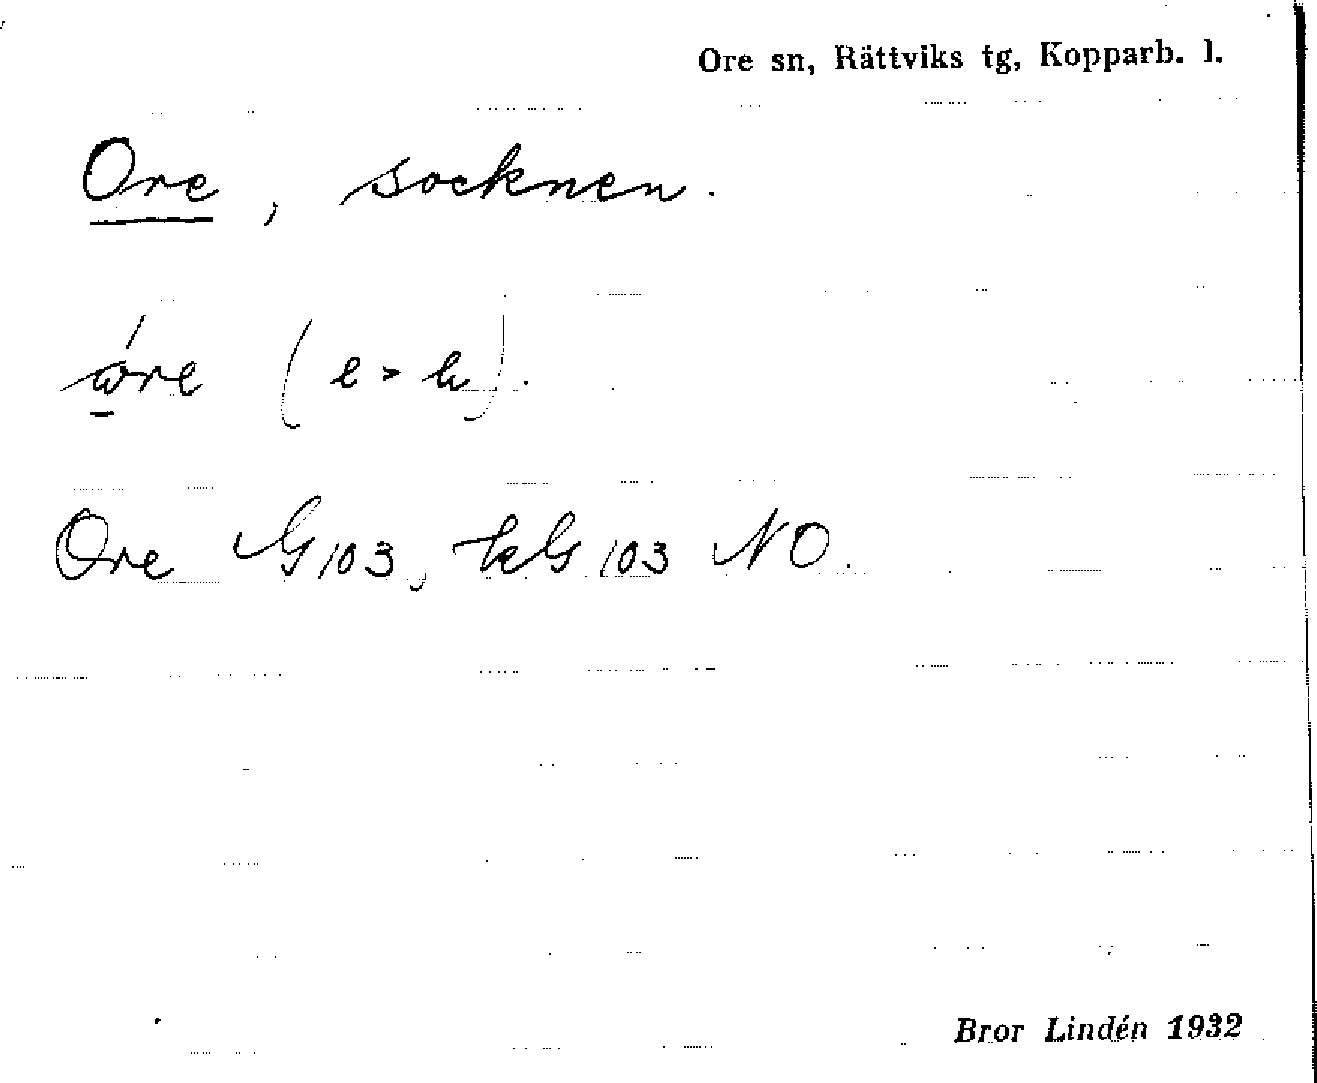 Ore sn, Rättviks tg, Kopparb. l.
Ore, socknen.
åre (e >
Ore G 103, kG 103 NO.
Bror Lindén 1932